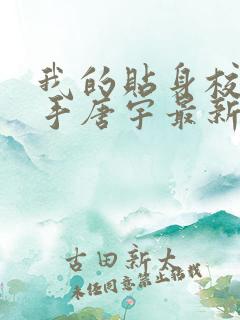 我的貼身校
手唐宇最新
古田新大
未经同意禁止转载